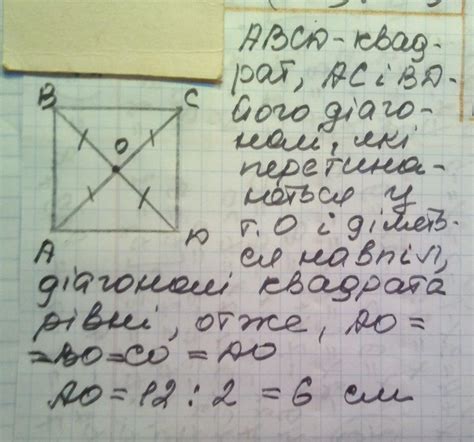 ABCД-квад-
рат, AC і BД-
його діаго-
налі, які
перетина-
ються у
т. O і ділять-
ся навпіл,
діагоналі квадрата
рівні, отже, AO =
=BO=CO=ДO
AO=12:2=6 см
B
C
O
A
Д